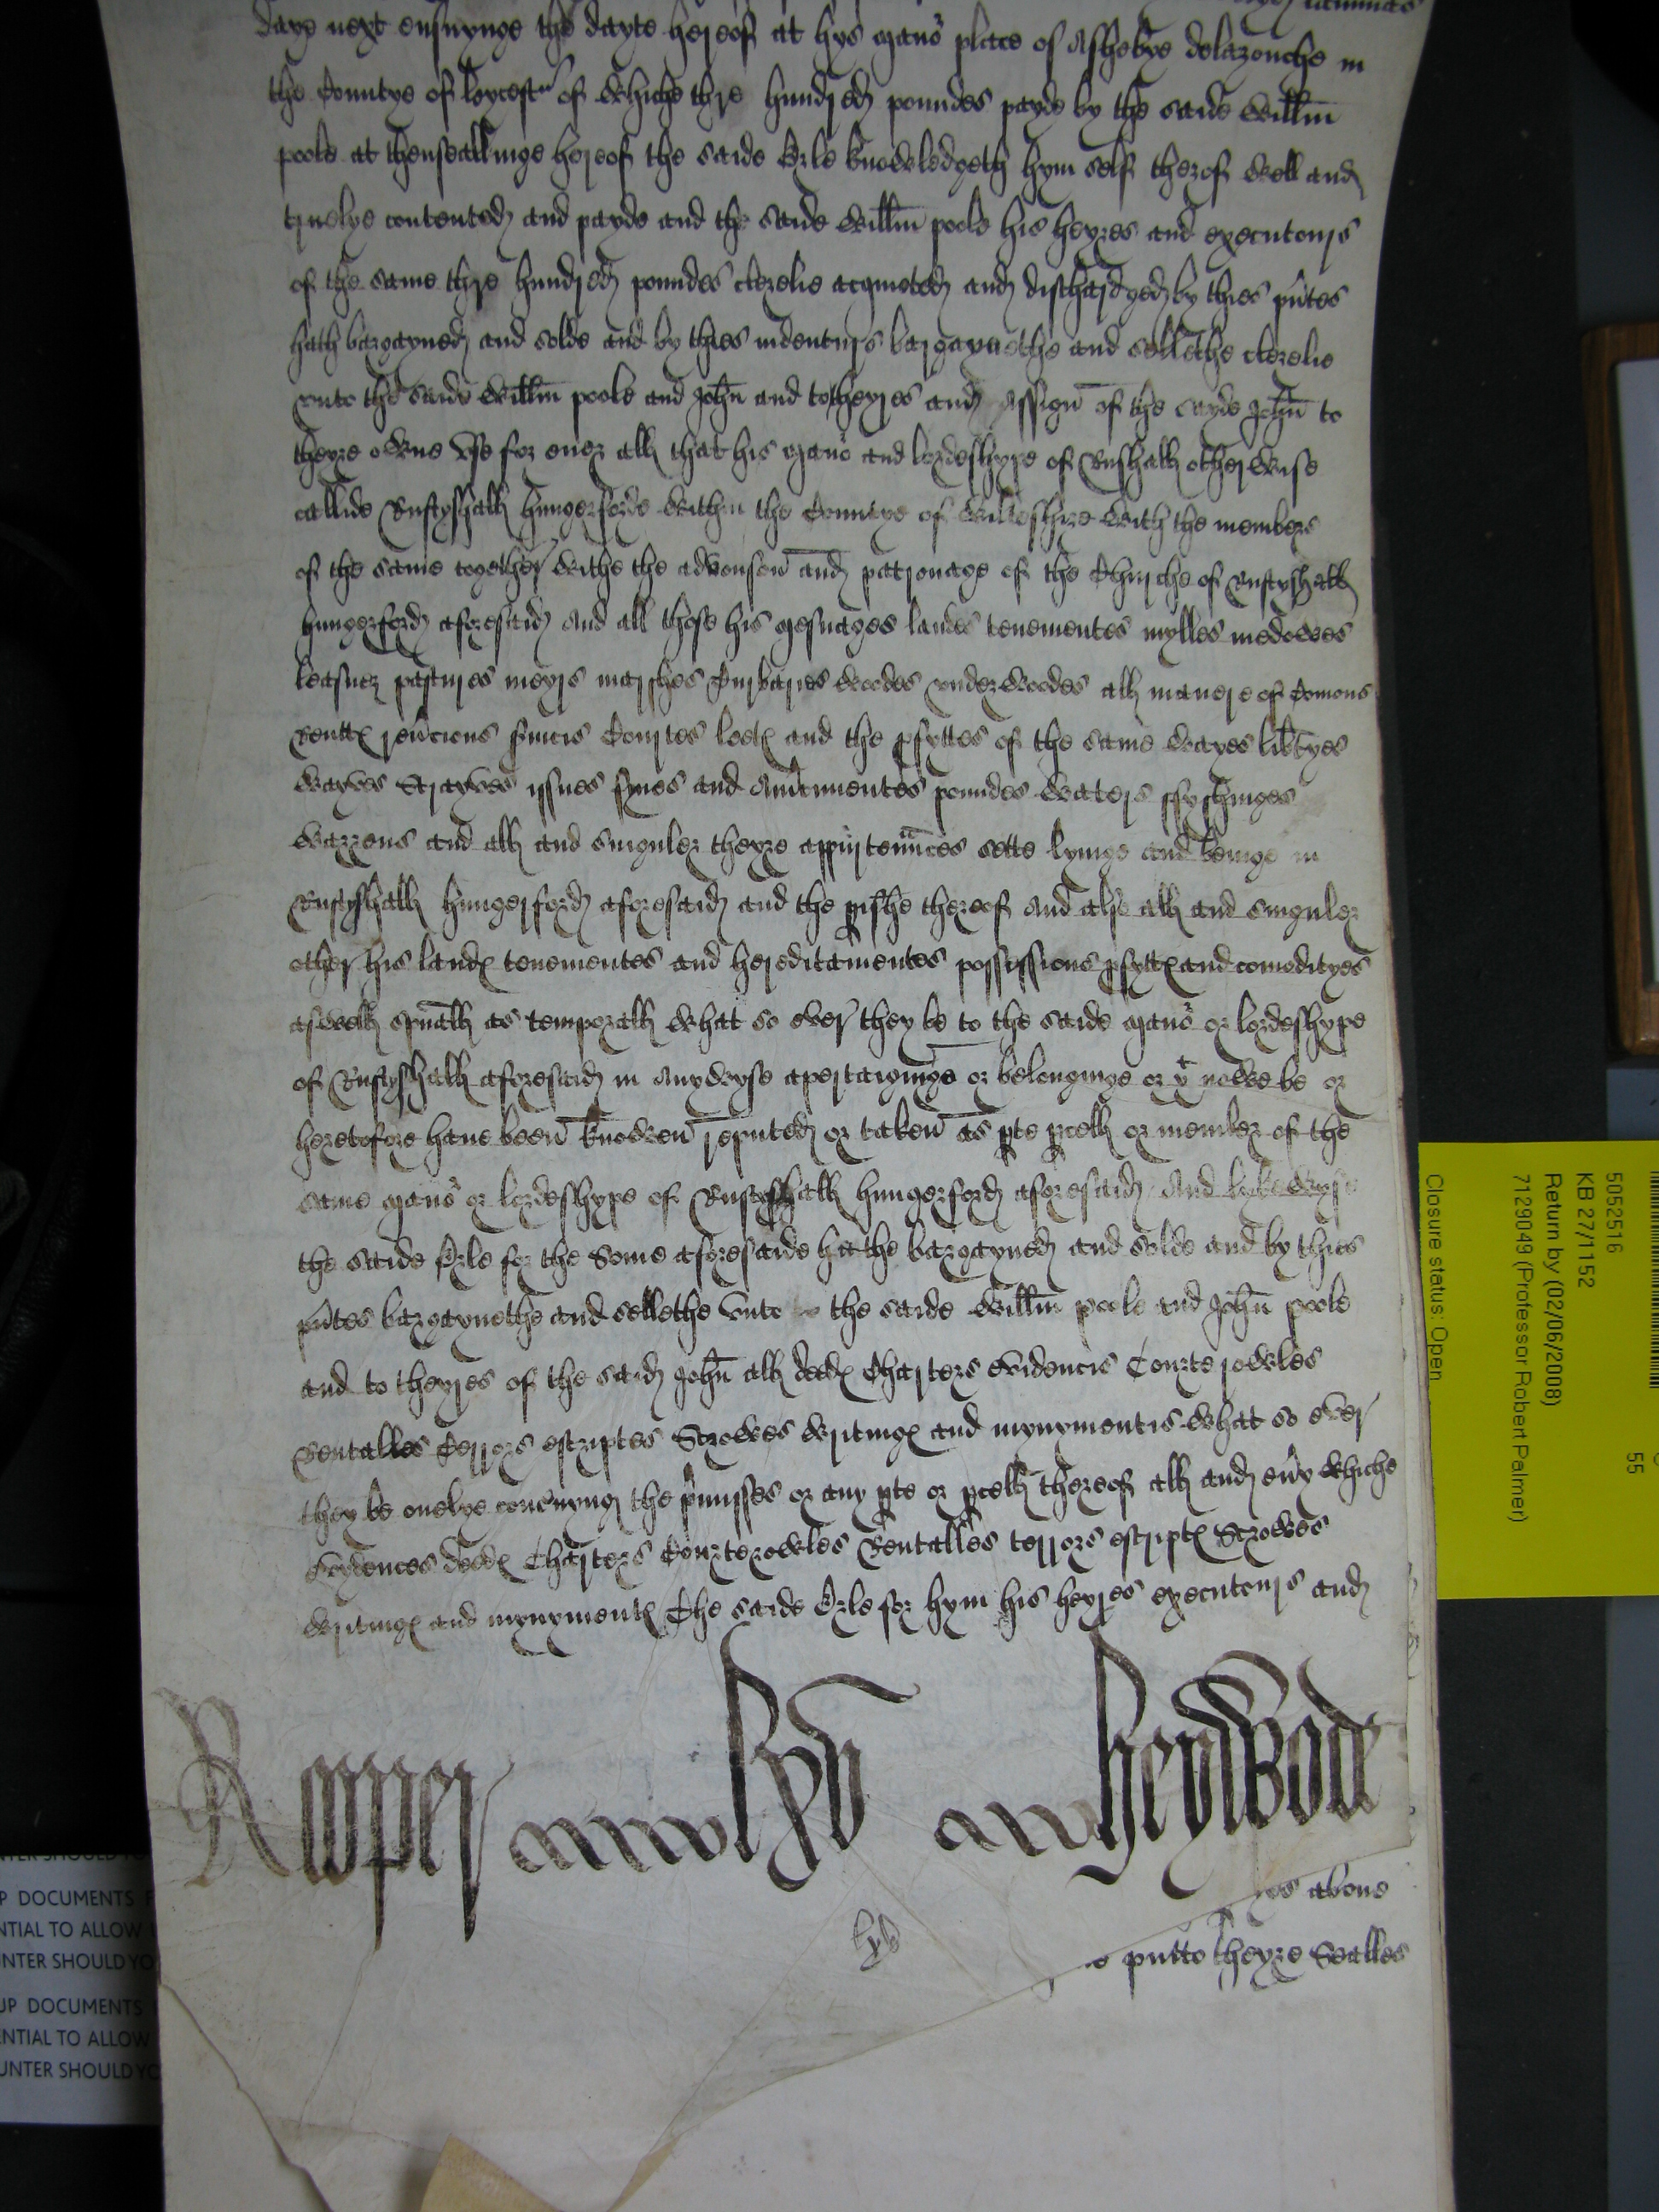 daye next ensuynge the dayte hereof at hys mano' place of Asshebye delazouche in
the Countye of leycestr' of whiche thre hundred poundes payde by the saide Willm
poole at thensealinge hereof the saide Erle knowledgeth hym self therof well and
truelye contented and payde and the saide Willm poole his heyres and executours
of the same thre hundred poundes clerelie acquoted and dischardged by thies pntes
hath bargayned and solde and by thies indenturs bargaynethe and sellethe clerelie
unto the saide Willm poole and John and to theyres and Assign of the sayde John to
theyre owne Use for ever all that his mano' and lordeshype of Rushall otherwise
callide Rustyshall hungerforde within the Countye of Wilteshire with the members
of the same together withe the advouson and patronage of the Churche of Rustyshall
hungerford aforesaid And all those his mesuages landes tenementes mylles medowes
leasuez pastures meyrs marshes turbaries woodes underwoodes all manere of Comons
Rentts revcions servicis Courtes leets and the pfyttes of the same wayes libtyes
wayves Strayves yssues fynes and Amcimentes poundes waters ffyshinges
warrens and all and singuler theyre appurtennces sette lyinge and beinge in
Rustyshall hungerford aforesaid and the pishe thereof And also all and singuler
other his landes tenementes and hereditamentes possessions pfyttes and comodityes
aswell spuall as temporall what so ever they be to the saide mano' or lordeshype
of Rustyshall aforesaid in Anywyse apertaigninge or belonginge or yt nowe be or
heretofore have been knowen reputed or taken as pte pcell or member of the
same mano' or lordeshype of Rustyshall hungerford aforesaid And lykewyse
the saide Erle for the Some aforesaide hathe bargayned and solde and by thies
pntes bargaynethe and sellethe Unto the saide Willm poole and John poole
and to theyres of the said John all deedes Charters evidencis Courte rowles
Rentalles Terrors escriptes Scrowes writinges and mynymentis what so ever
they be onelye concnyng the pmisses or any pte or pcell thereof all and evy whiche
evydences deedes Charters Courterowles Rentalles terrors escriptes Scrowes
writinges and mynymentes The saide Erle for hym his heyres executours and
Rooper
heywode
es above
putto theyre Sealles
5052516
KB 27/1152
Return by (02/06/2008)
7129049 (Professor Robert Palmer)
Closure status: Open
55
UP DOCUMENTS
ENTIAL TO ALLOW
UNTER SHOULD YO
UP DOCUMENTS
ENTIAL TO ALLOW
UNTER SHOULD YO